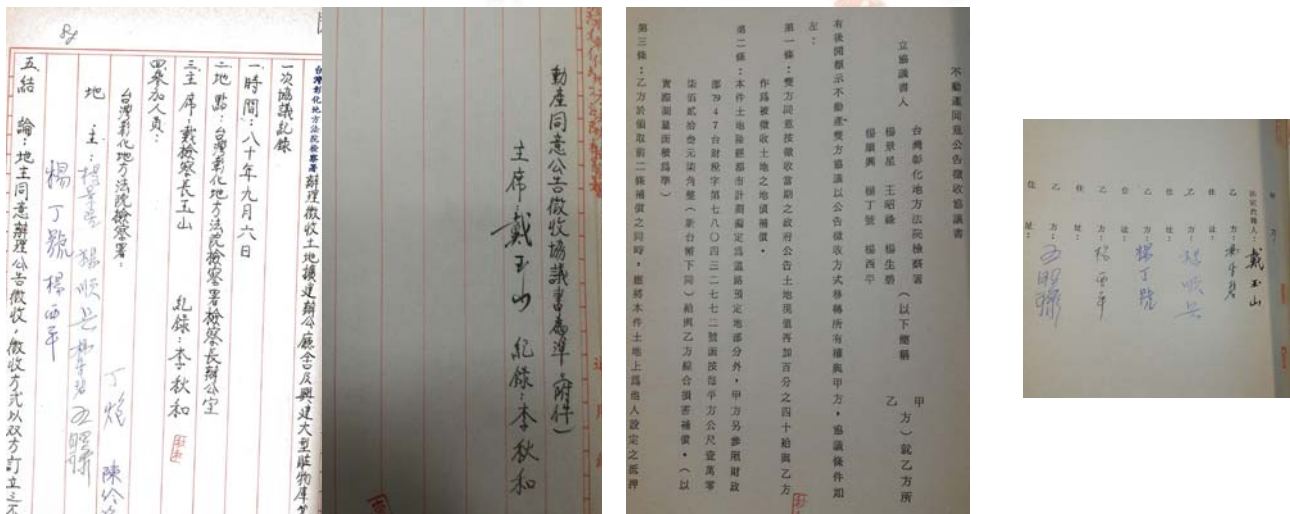 台灣彰化地方法院檢察署辦理徵收土地擴建辦公廳舍及興建大型贓物庫第
一次協議記錄
一、時間：八十年九月六日
二、地點：台灣彰化地方法院檢察署檢察長辦公室
三、主席：戴檢察長玉山　紀錄：李秋和
四、參加人員：
台灣彰化地方法院檢察署：
地主：楊景星　楊順興　楊生碧　王昭祿
楊丁號　楊西平
五、結論：地主同意辦理公告徵收，徵收方式以双方訂立之不
動產同意公告徵收協議書為準。（附件）
主席：戴玉山　紀錄：李秋和
不動產同意公告徵收協議書
台灣彰化地方法院檢察署　甲
立協議書人　（以下簡稱　方）就乙方所
楊景星　王昭祿　楊生碧　乙
楊順興　楊丁號　楊西平
有後開標示不動產雙方協議以公告徵收方式移轉所有權與甲方，協議條件如
左：
第一條：雙方同意按徵收當期之政府公告土地現值再加百分之四十給與乙方
作為被徵收土地之地價補償。
第二條：本件土地除經都市計劃擬定為道路預定地部分外，甲方另參照財政
部79 4 7台財稅字第七八〇四三二七七二號函按每平方公尺壹萬零
柒佰貳拾叁元柒角整（新台幣下同）給與乙方綜合損害補償。（以
實際測量面積為準）
第三條：乙方於領取前二條補償之同時，應將本件土地上為他人設定之抵押
甲方：
法定代理人：戴玉山
乙方：楊生碧
住址：
乙方：楊順興
住址：
乙方：楊丁號
住址：
乙方：楊西平
住址：
乙方：王昭祿
住址：